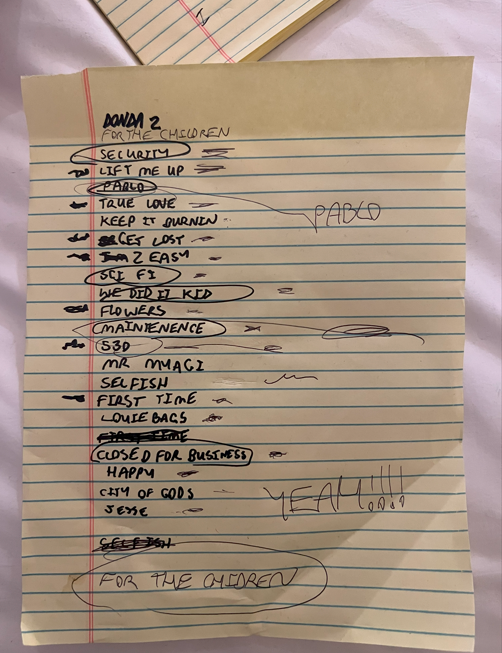 DONDA 2
FOR THE CHILDREN
SECURITY
LIFT ME UP
PABLO
TRUE LOVE
PABLO
KEEP IT BURNIN
GET LOST
2 EASY
SCI FI
WE DID IT KID
FLOWERS
MAINTENENCE
530
MR MYAGI
SELFISH
FIRST TIME
LOUIE BAGS
FIRST TIME
CLOSED FOR BUSINESS
HAPPY
CITY OF GODS
YEAH!!!!
JESSE
SELFISH
FOR THE CHIDREN